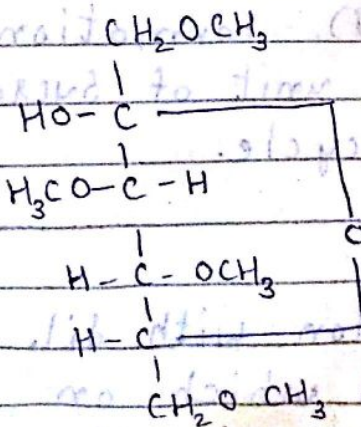 CH₂OCH₃
HO-C
H₃CO-C-H
O
H-C-OCH₃
H-C
CH₂OCH₃